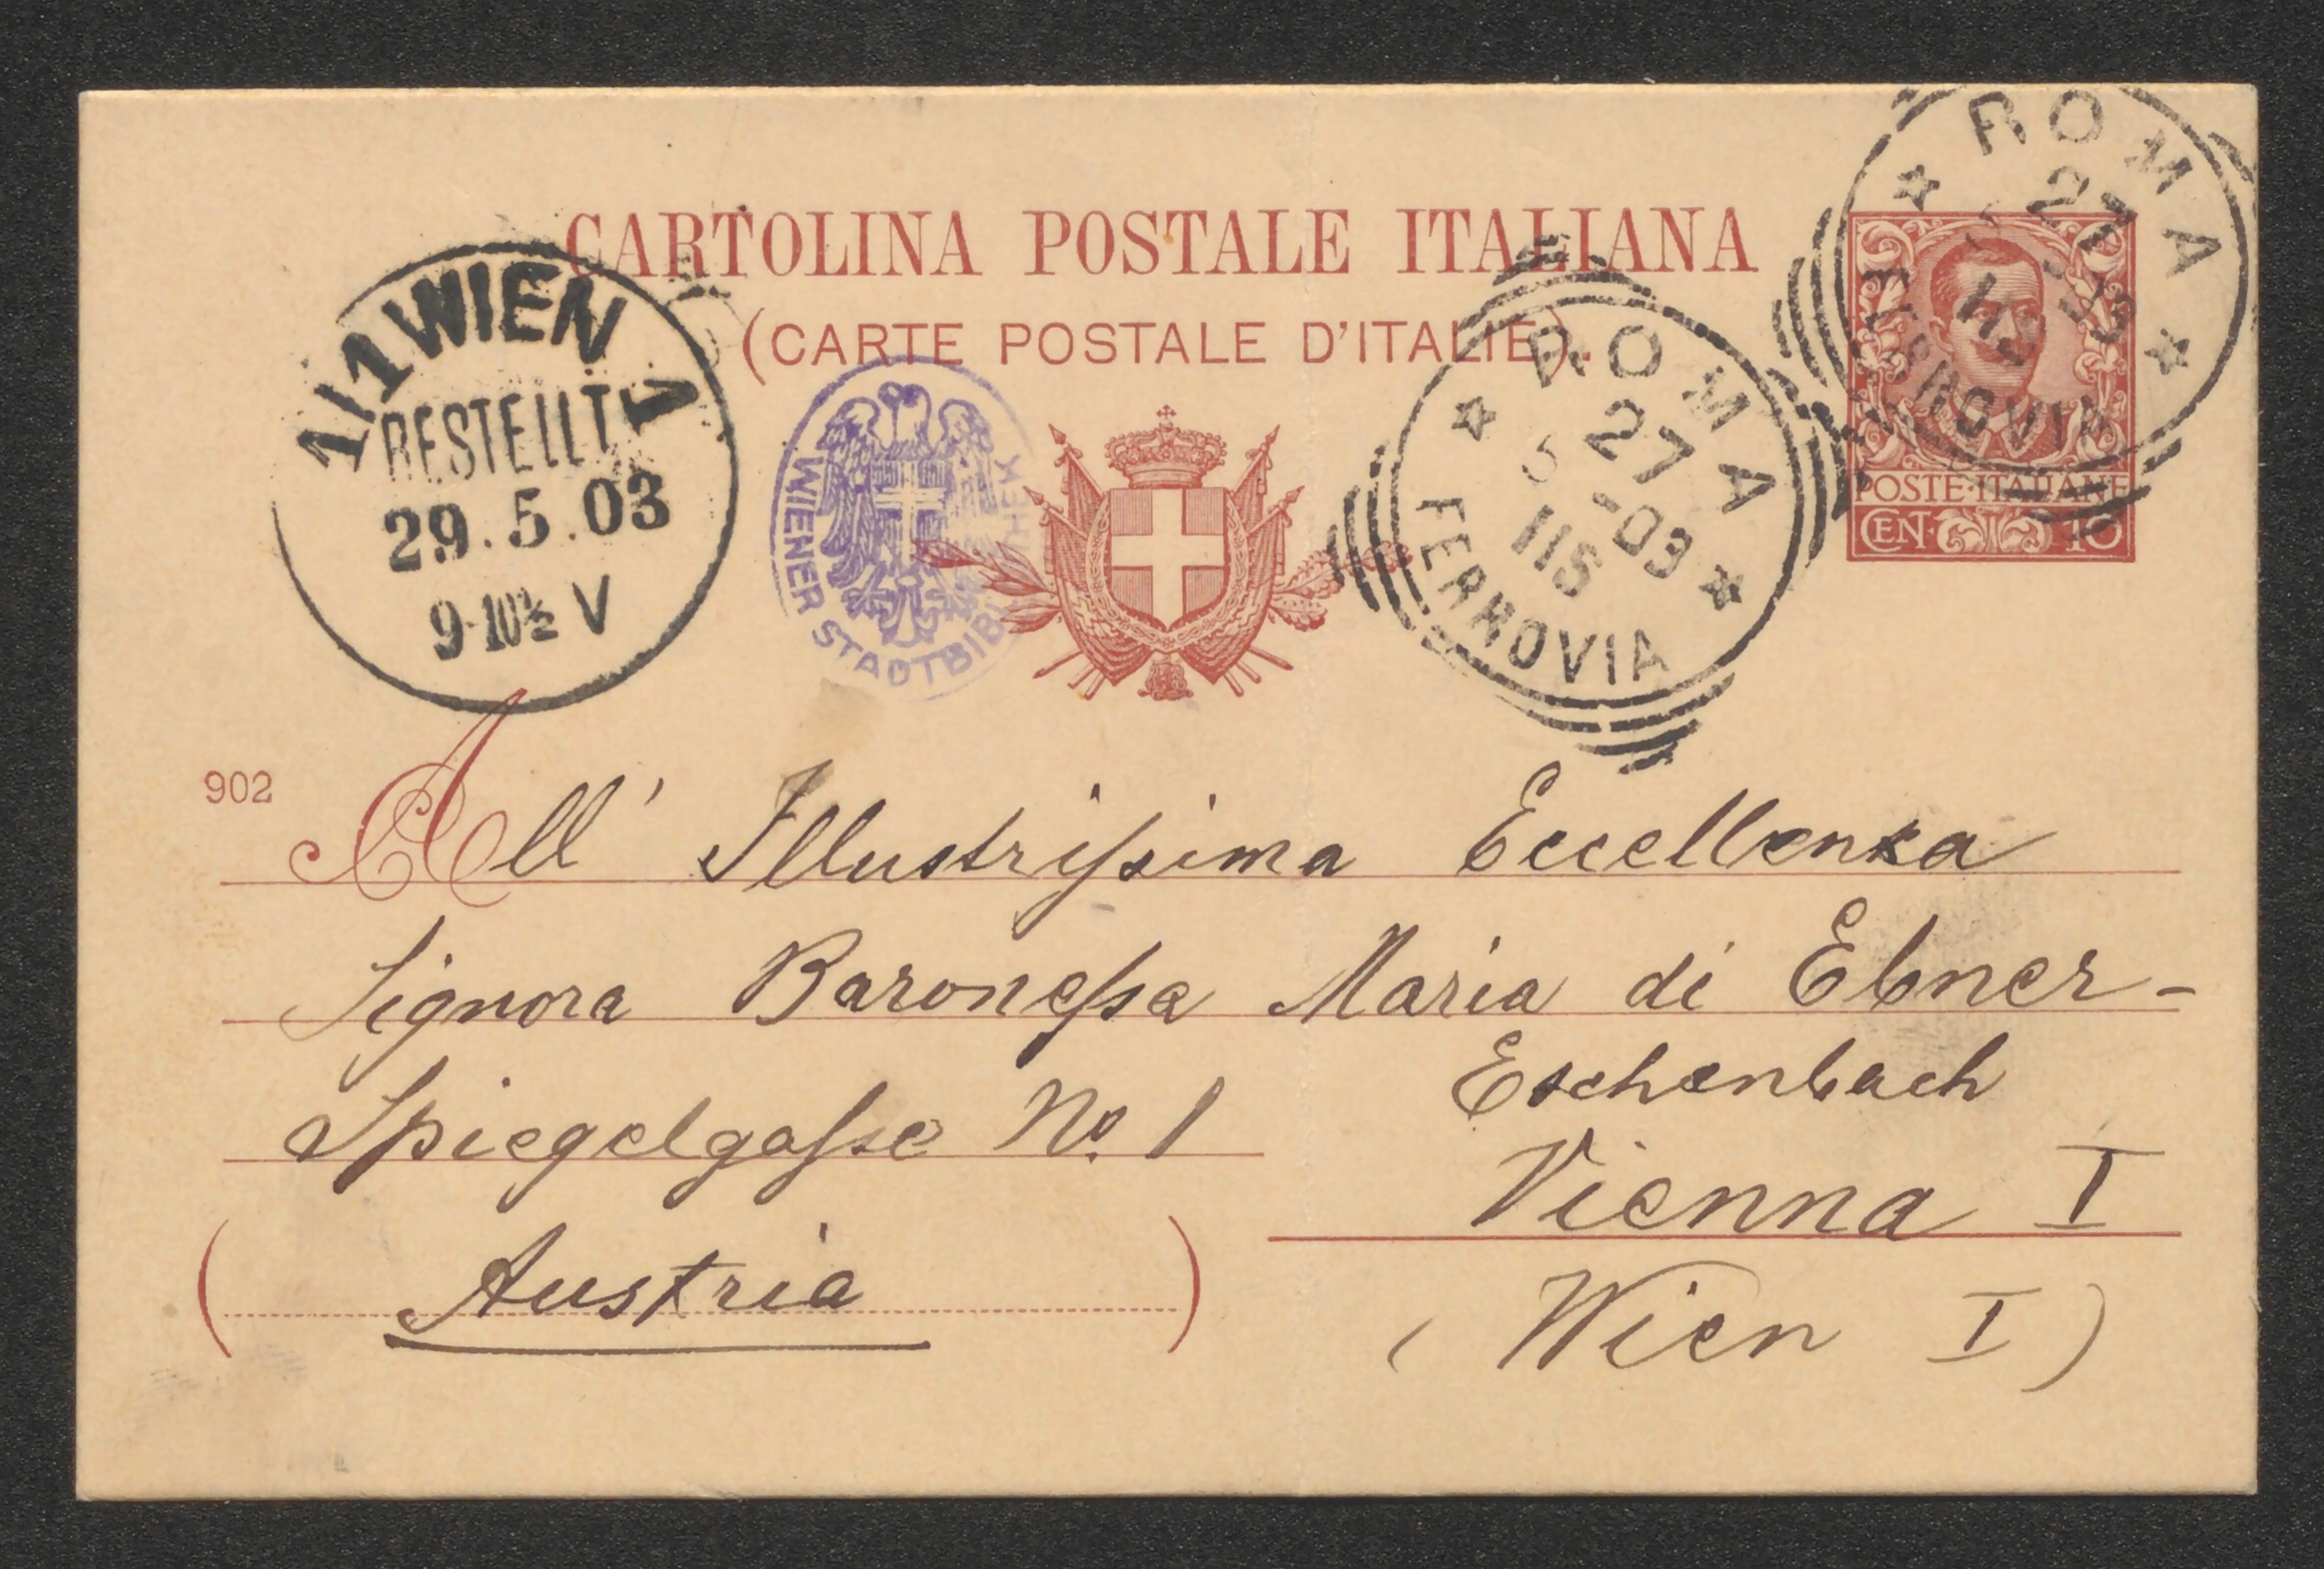 CARTOLINA POSTALE ITALIANA
(CARTE POSTALE D'ITALIE).
1/1 WIEN 1
BESTELLT
29.5.03
9-10½ V
WIENER STADTBIBLIOTHEK
ROMA
27
5 -03
11S
FERROVIA
ROMA
27
5 -03
11S
FERROVIA
POSTE·ITALIANE
CEN· 10
902
All' Illustrissima Eccellenza
Signora Baronessa Maria di Ebner-
Eschenbach
Spiegelgasse No. 1
Vienna I
(Austria)
(Wien I)